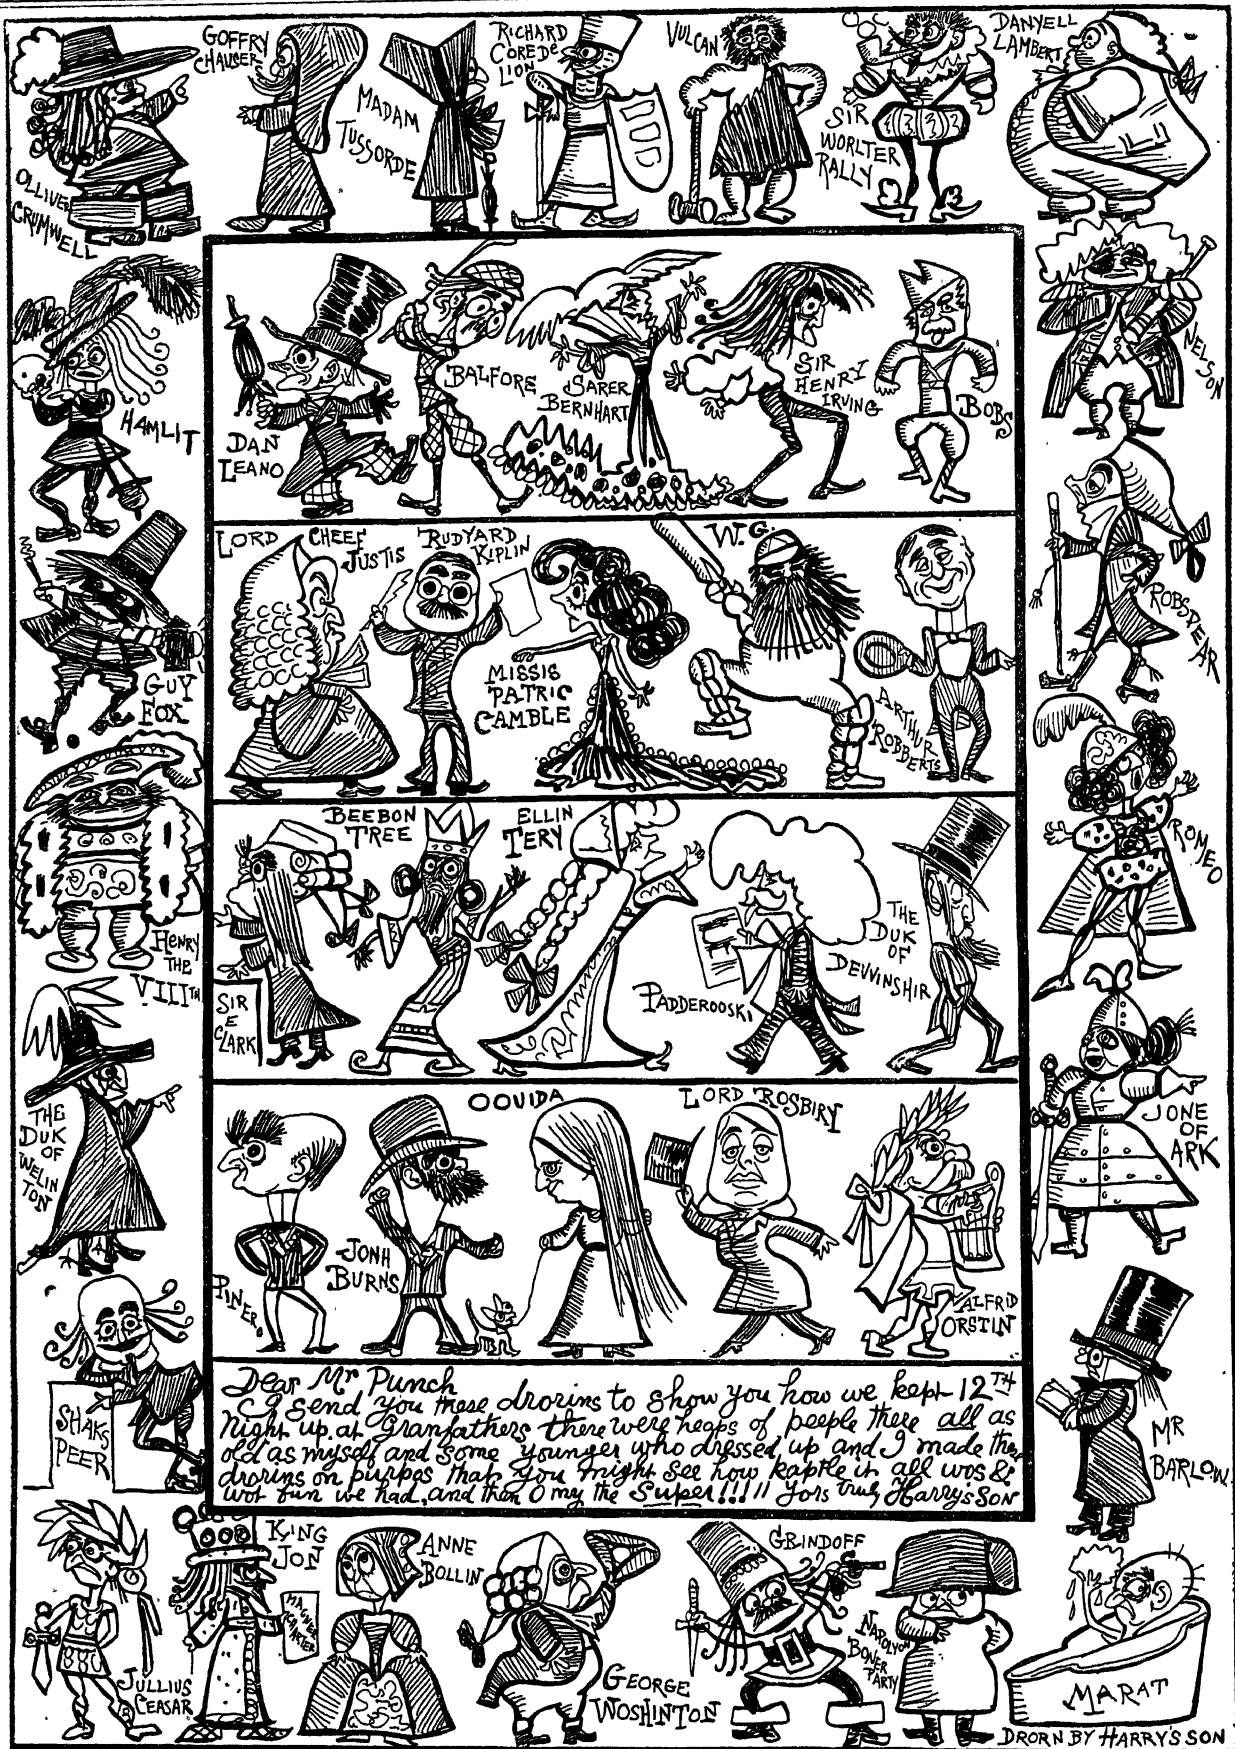 OLLIVER
CRUMWELL
GOFFRY
CHAUSER
MADAM
TUSSORDE
RICHARD
COREDE
LION
VULCAN
SIR
WORLTER
RALLY
DANYELL
LAMBERT
HAMLIT
NELSON
DAN
LEANO
BALFORE
SARER
BERNHART
SIR
HENRY
IRVING
BOBS
GUY
FOX
LORD CHEEF
JUSTIS
RUDYARD
KIPLIN
MISSIS
PATRIC
CAMBLE
W.G.
ARTHUR
ROBBERTS
ROBSDEAR
HENRY
THE
VIIITH
SIR
E
CLARK
BEEBON
TREE
ELLIN
TERY
PADDEROOSKI
THE
DUK
OF
DEVVINSHIR
ROMEO
THE
DUK
OF
WELIN
TON
PINERO
JONH
BURNS
OOUIDA
LORD ROSBIRY
ALFRID
ORSTIN
JONE
OF
ARK
SHAKS
PEER
MR
BARLOW.
Dear Mr Punch
I send you these drorins to show you how we kept 12TH
Night up at Granfathers there were heaps of peeple there all as
old as myself and some younger who dressed up and I made the
drorins on purpos that you might see how kaptle it all wos &
wot fun we had, and then O my the Super!!!!! Yors truly Harry's Son
JULLIUS
CEASAR
KING
JON
MAGNER
CHARTER
ANNE
BOLLIN
GEORGE
WOSHINTON
GRINDOFF
NAPOLYON
BONER
PARTY
MARAT
DRORN BY HARRY'S SON